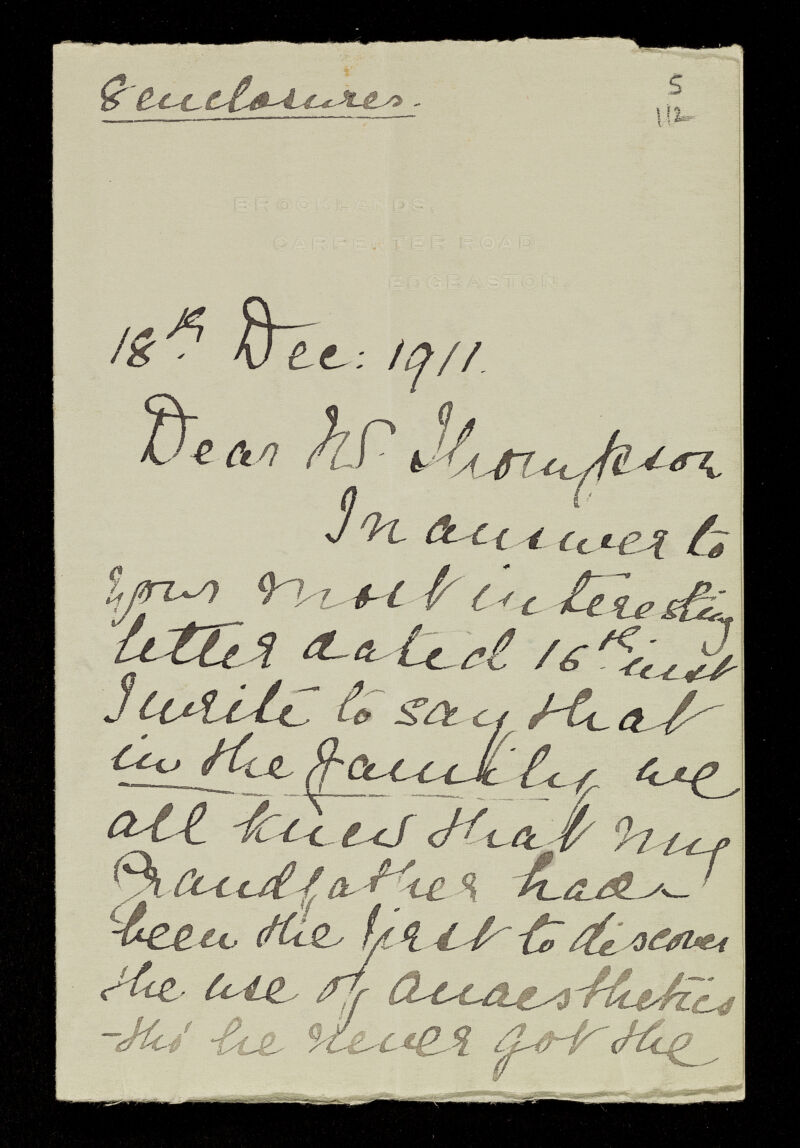 8 enclosures.
5
112
BROOKLANDS,
CARPENTER ROAD,
EDGBASTON.
18th. Dec: 1911.
Dear Thompson
In answer to
your most interesting
letter dated 16th. inst
I write to say that
in the family, we
all knew that my
Grandfather had
been the first to discover
the use of anaesthetics
-tho' he never got the